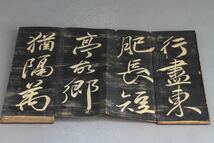 行盡東
肥長短
亭故鄉
猶隔萬